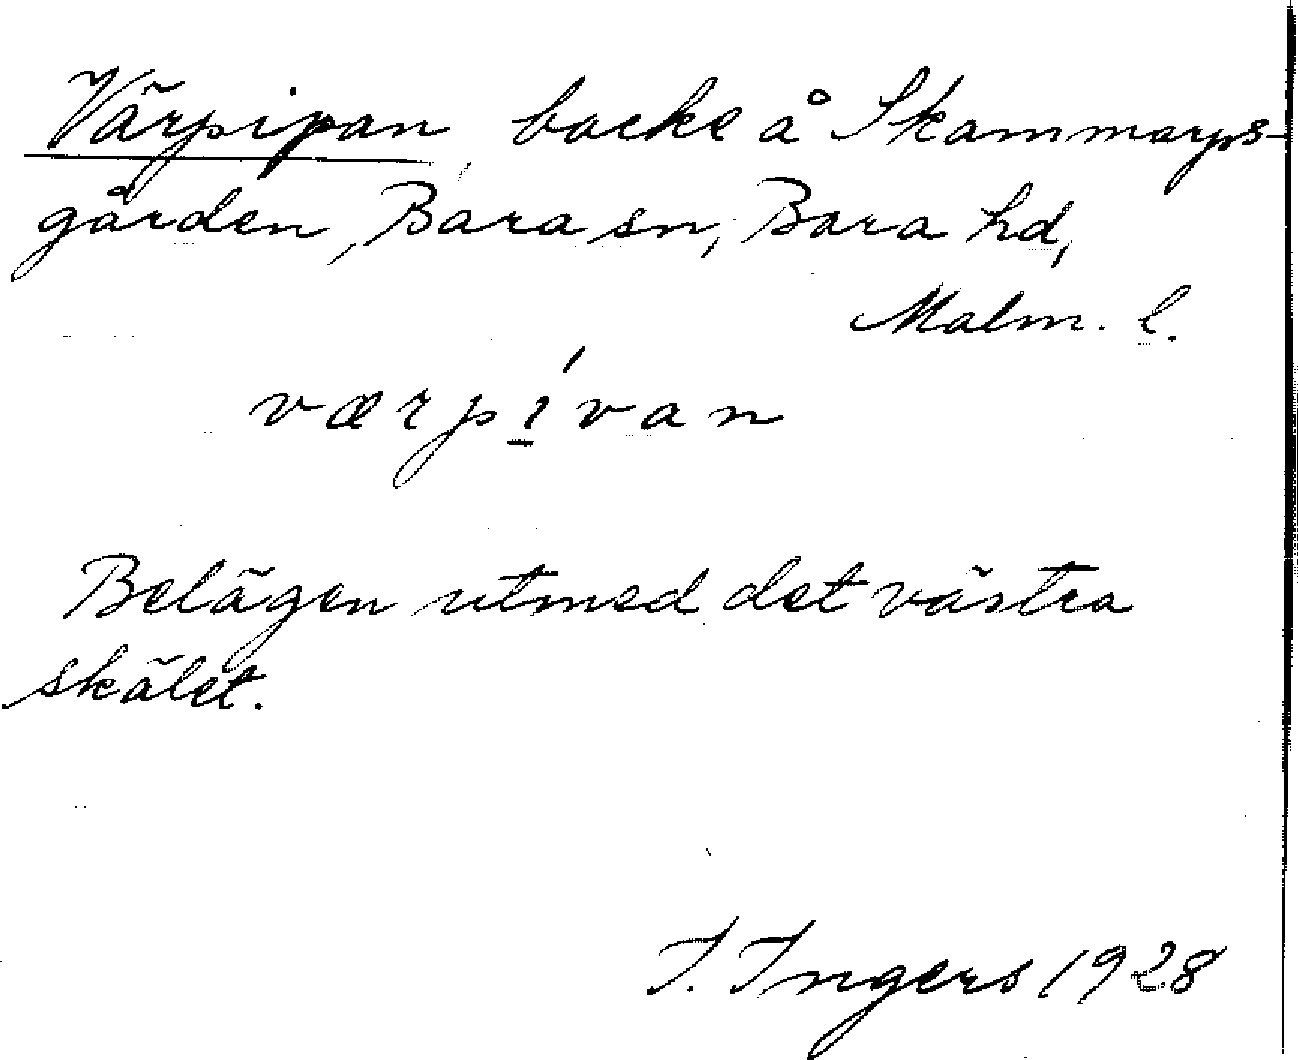 Värpipan, backe å Skammarps-
gården, Bara sn, Bara hd,
Malm. l.
værpí̱van
Belägen utmed det västra
skälet.
I. Ingers 1928